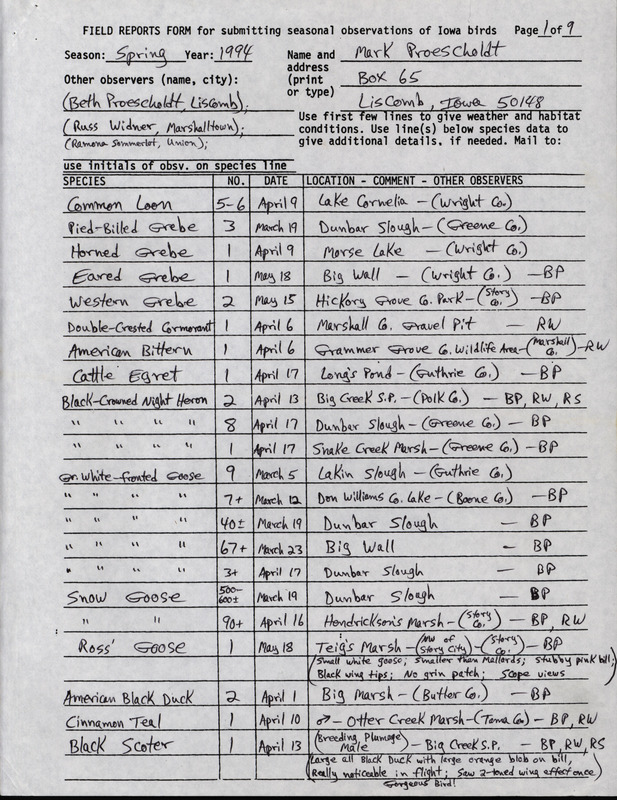 FIELD REPORTS FORM for submitting seasonal observations of Iowa birds Page 1 of 9
Season: Spring Year: 1994 Name and address (print or type) Mark Proescholdt
Box 65
Liscomb, Iowa 50148
Other observers (name, city):
(Beth Proescholdt, Liscomb);
(Russ Widner, Marshalltown);
(Ramona Sommerlot, Union);
Use first few lines to give weather and habitat
conditions. Use line(s) below species data to
give additional details, if needed. Mail to:
use initials of obsv. on species line
SPECIES NO. DATE LOCATION - COMMENT - OTHER OBSERVERS
Common Loon 5-6 April 9 Lake Cornelia - (Wright Co.)
Pied-Billed Grebe 3 March 19 Dunbar Slough - (Greene Co.)
Horned Grebe 1 April 9 Morse Lake - (Wright Co.)
Eared Grebe 1 May 18 Big Wall - (Wright Co.) - BP
Western Grebe 2 May 15 Hickory Grove Co. Park - (Story Co.) - BP
Double-Crested Cormorant 1 April 6 Marshall Co. Gravel Pit - RW
American Bittern 1 April 6 Grammer Grove Co. Wildlife Area - (Marshall Co.) - RW
Cattle Egret 1 April 17 Long's Pond - (Guthrie Co.) - BP
Black-Crowned Night Heron 2 April 13 Big Creek S.P. - (Polk Co.) - BP, RW, RS
" " " " 8 April 17 Dunbar Slough - (Greene Co.) - BP
" " " " 1 April 17 Snake Creek Marsh - (Greene Co.) - BP
Gr. White-fronted Goose 9 March 5 Lakin Slough - (Guthrie Co.)
" " " " 7+ March 12 Don Williams Co. Lake - (Boone Co.) - BP
" " " " 40± March 19 Dunbar Slough - BP
" " " " 67+ March 23 Big Wall - BP
" " " " 3+ April 17 Dunbar Slough - BP
Snow Goose 500-600± March 19 Dunbar Slough - BP
" " 90+ April 16 Hendrickson's Marsh - (Story Co.) - BP, RW
Ross' Goose 1 May 18 Teig's Marsh - (NW of Story City) - (Story Co.) - BP
(Small white goose; smaller than Mallards; stubby pink bill;
Black wing tips; No grin patch; Scope views)
American Black Duck 2 April 1 Big Marsh - (Butler Co.) - BP
Cinnamon Teal 1 April 10 ♂ - Otter Creek Marsh - (Tama Co.) - BP, RW
Black Scoter 1 April 13 (Breeding Plumage Male) - Big Creek S.P. - BP, RW, RS
(Large all Black Duck with large orange blob on bill,
Really noticeable in flight; Saw 2-toned wing effect once)
Gorgeous Bird!